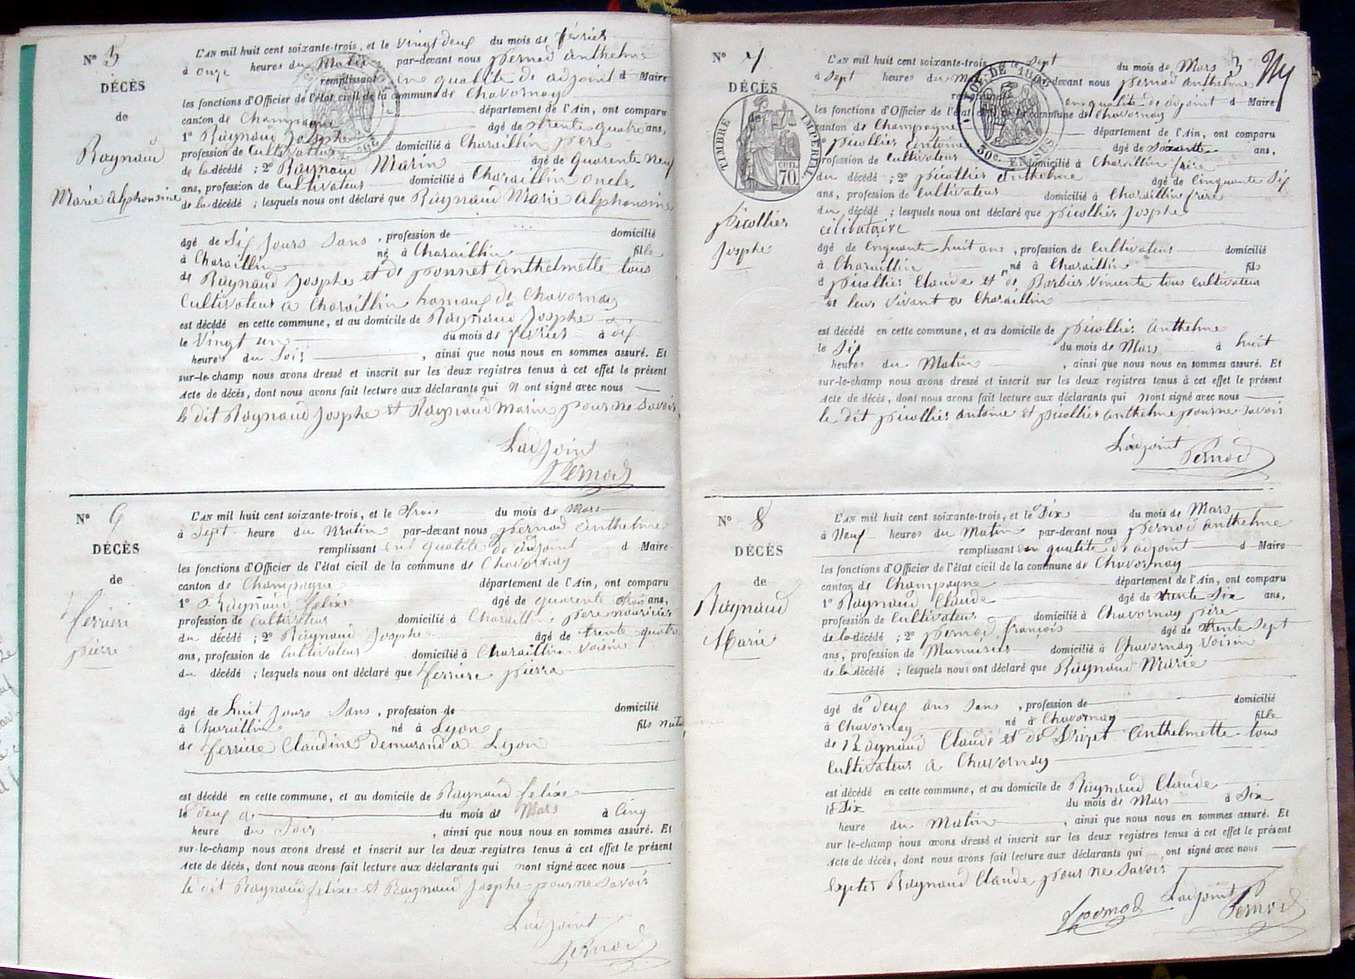 N° 5
DÉCÈS
de
Raynaud
Marie alphonsine
L'AN mil huit cent soixante-trois, et le vingt deux du mois de février
à onze heures du Matin par-devant nous pernod anthelme
remplissant en qualité de adjoint d Maire
les fonctions d'Officier de l'état civil de la commune de Chavornay
canton de Champagne département de l'Ain, ont comparu
1° Raynaud Josphe âgé de trente quatre ans,
profession de Cultivateur domicilié à Charaillin père
de la décédé ; 2° Raynaud Marin âgé de quarente neuf
ans, profession de Cultivateur domicilié à Charaillin oncle
de la décédé ; lesquels nous ont déclaré que Raynaud Marie alphonsine
âgé de Six jours Sans , profession de domicilié
à Charaillin né à Charaillin fille
de Raynaud Josphe et de ponnet anthelmette tous
Cultivateur a Charaillin hameau de Chavornay
est décédé en cette commune, et au domicile de Raynaud Josphe
le Vingt un du mois de février à dix
heures du Soir , ainsi que nous nous en sommes assuré. Et
sur-le-champ nous avons dressé et inscrit sur les deux registres tenus à cet effet le présent
Acte de décès, dont nous avons fait lecture aux déclarants qui n ont signé avec nous
le dit Raynaud Josphe et Raynaud Marin pour ne Savoir
Ladjoint
Pernod
N° 6
DÉCÈS
de
ferrieri
pierre
L'AN mil huit cent soixante-trois, et le trois du mois de Mars
à Sept heure du Matin par-devant nous pernod anthelme
remplissant en qualité de adjoint d Maire
les fonctions d'Officier de l'état civil de la commune de Chavornay
canton de Champagne département de l'Ain, ont comparu
1° Raynaud felixe âgé de quarente trois ans,
profession de Cultivateur domicilié à Charaillin pere nouricier
du décédé ; 2° Raynaud Josphe âgé de trente quatre
ans, profession de Cultivateur domicilié à Charaillin Voisin
du décédé ; lesquels nous ont déclaré que ferriere pierra
âgé de huit Jours Sans , profession de domicilié
à Charaillin né à Lyon fils
de ferriere Claudine demurand a Lyon
est décédé en cette commune, et au domicile de Raynaud felixe
le deux du mois de Mars à Cinq
heure du Soir , ainsi que nous nous en sommes assuré. Et
sur-le-champ nous avons dressé et inscrit sur les deux registres tenus à cet effet le présent
Acte de décès, dont nous avons fait lecture aux déclarants qui nont signé avec nous
le dit Raynaud felixe et Raynaud Josphe pour ne Savoir
Ladjoint
Pernod
N° 7
DÉCÈS
de
TIMBRE IMPÉRIAL
70
picollier
Josphe
3
L'AN mil huit cent soixante-trois, Sept du mois de Mars
à Sept heures du par-devant nous pernod anthelme
en qualité de adjoint d Maire
les fonctions d'Officier de l'état commune de Chavornay
canton de Champagne département de l'Ain, ont comparu
picollier antoine âgé de Soixante ans,
profession de Cultivateur domicilié à Charaillin frère
du décédé ; 2° picollier anthelme âgé de Cinquante Six
ans, profession de Cultivateur domicilié à Charaillin frere
du décédé ; lesquels nous ont déclaré que picollier Josphe
célibataire
âgé de Cinquante huit ans , profession de Cultivateur domicilié
à Charaillin né à Charaillin fils
d picollier Claude et de Barbier vincente tous Cultivateur
de leur vivant a Charaillin
est décédé en cette commune, et au domicile de picollier anthelme
le Six du mois de Mars à huit
heures du Matin , ainsi que nous nous en sommes assuré. Et
sur-le-champ nous avons dressé et inscrit sur les deux registres tenus à cet effet le présent
Acte de décès, dont nous avons fait lecture aux déclarants qui nont signé avec nous
le dit picollier antoine et picollier anthelme pour ne Savoir
Ladjoint
Pernod
N° 8
DÉCÈS
de
Raynaud
Marie
L'AN mil huit cent soixante-trois, et le Six du mois de Mars
à Neuf heures du Matin par-devant nous pernod anthelme
remplissant en qualité de adjoint d Maire
les fonctions d'Officier de l'état civil de la commune de Chavornay
canton de Champagne département de l'Ain, ont comparu
1° Raynaud Claude âgé de trente Six ans,
profession de Cultivateur domicilié à Chavornay père
de la décédé ; 2° pernod françois âgé de trente Sept
ans, profession de Munuisier domicilié à Chavornay Voisin
de la décédé ; lesquels nous ont déclaré que Raynaud Marie
âgé de deux ans Sans , profession de domicilié
à Chavornay né à Chavornay fille
de Raynaud Claude et de anthelmette tous
Cultivateur a Chavornay
est décédé en cette commune, et au domicile de Raynaud Claude
le Six du mois de Mars à Six
heure du Matin , ainsi que nous nous en sommes assuré. Et
sur-le-champ nous avons dressé et inscrit sur les deux registres tenus à cet effet le présent
Acte de décès, dont nous avons fait lecture aux déclarants qui ont signé avec nous
Exptés Raynaud Claude pour ne Savoir
Fpernod Ladjoint Pernod